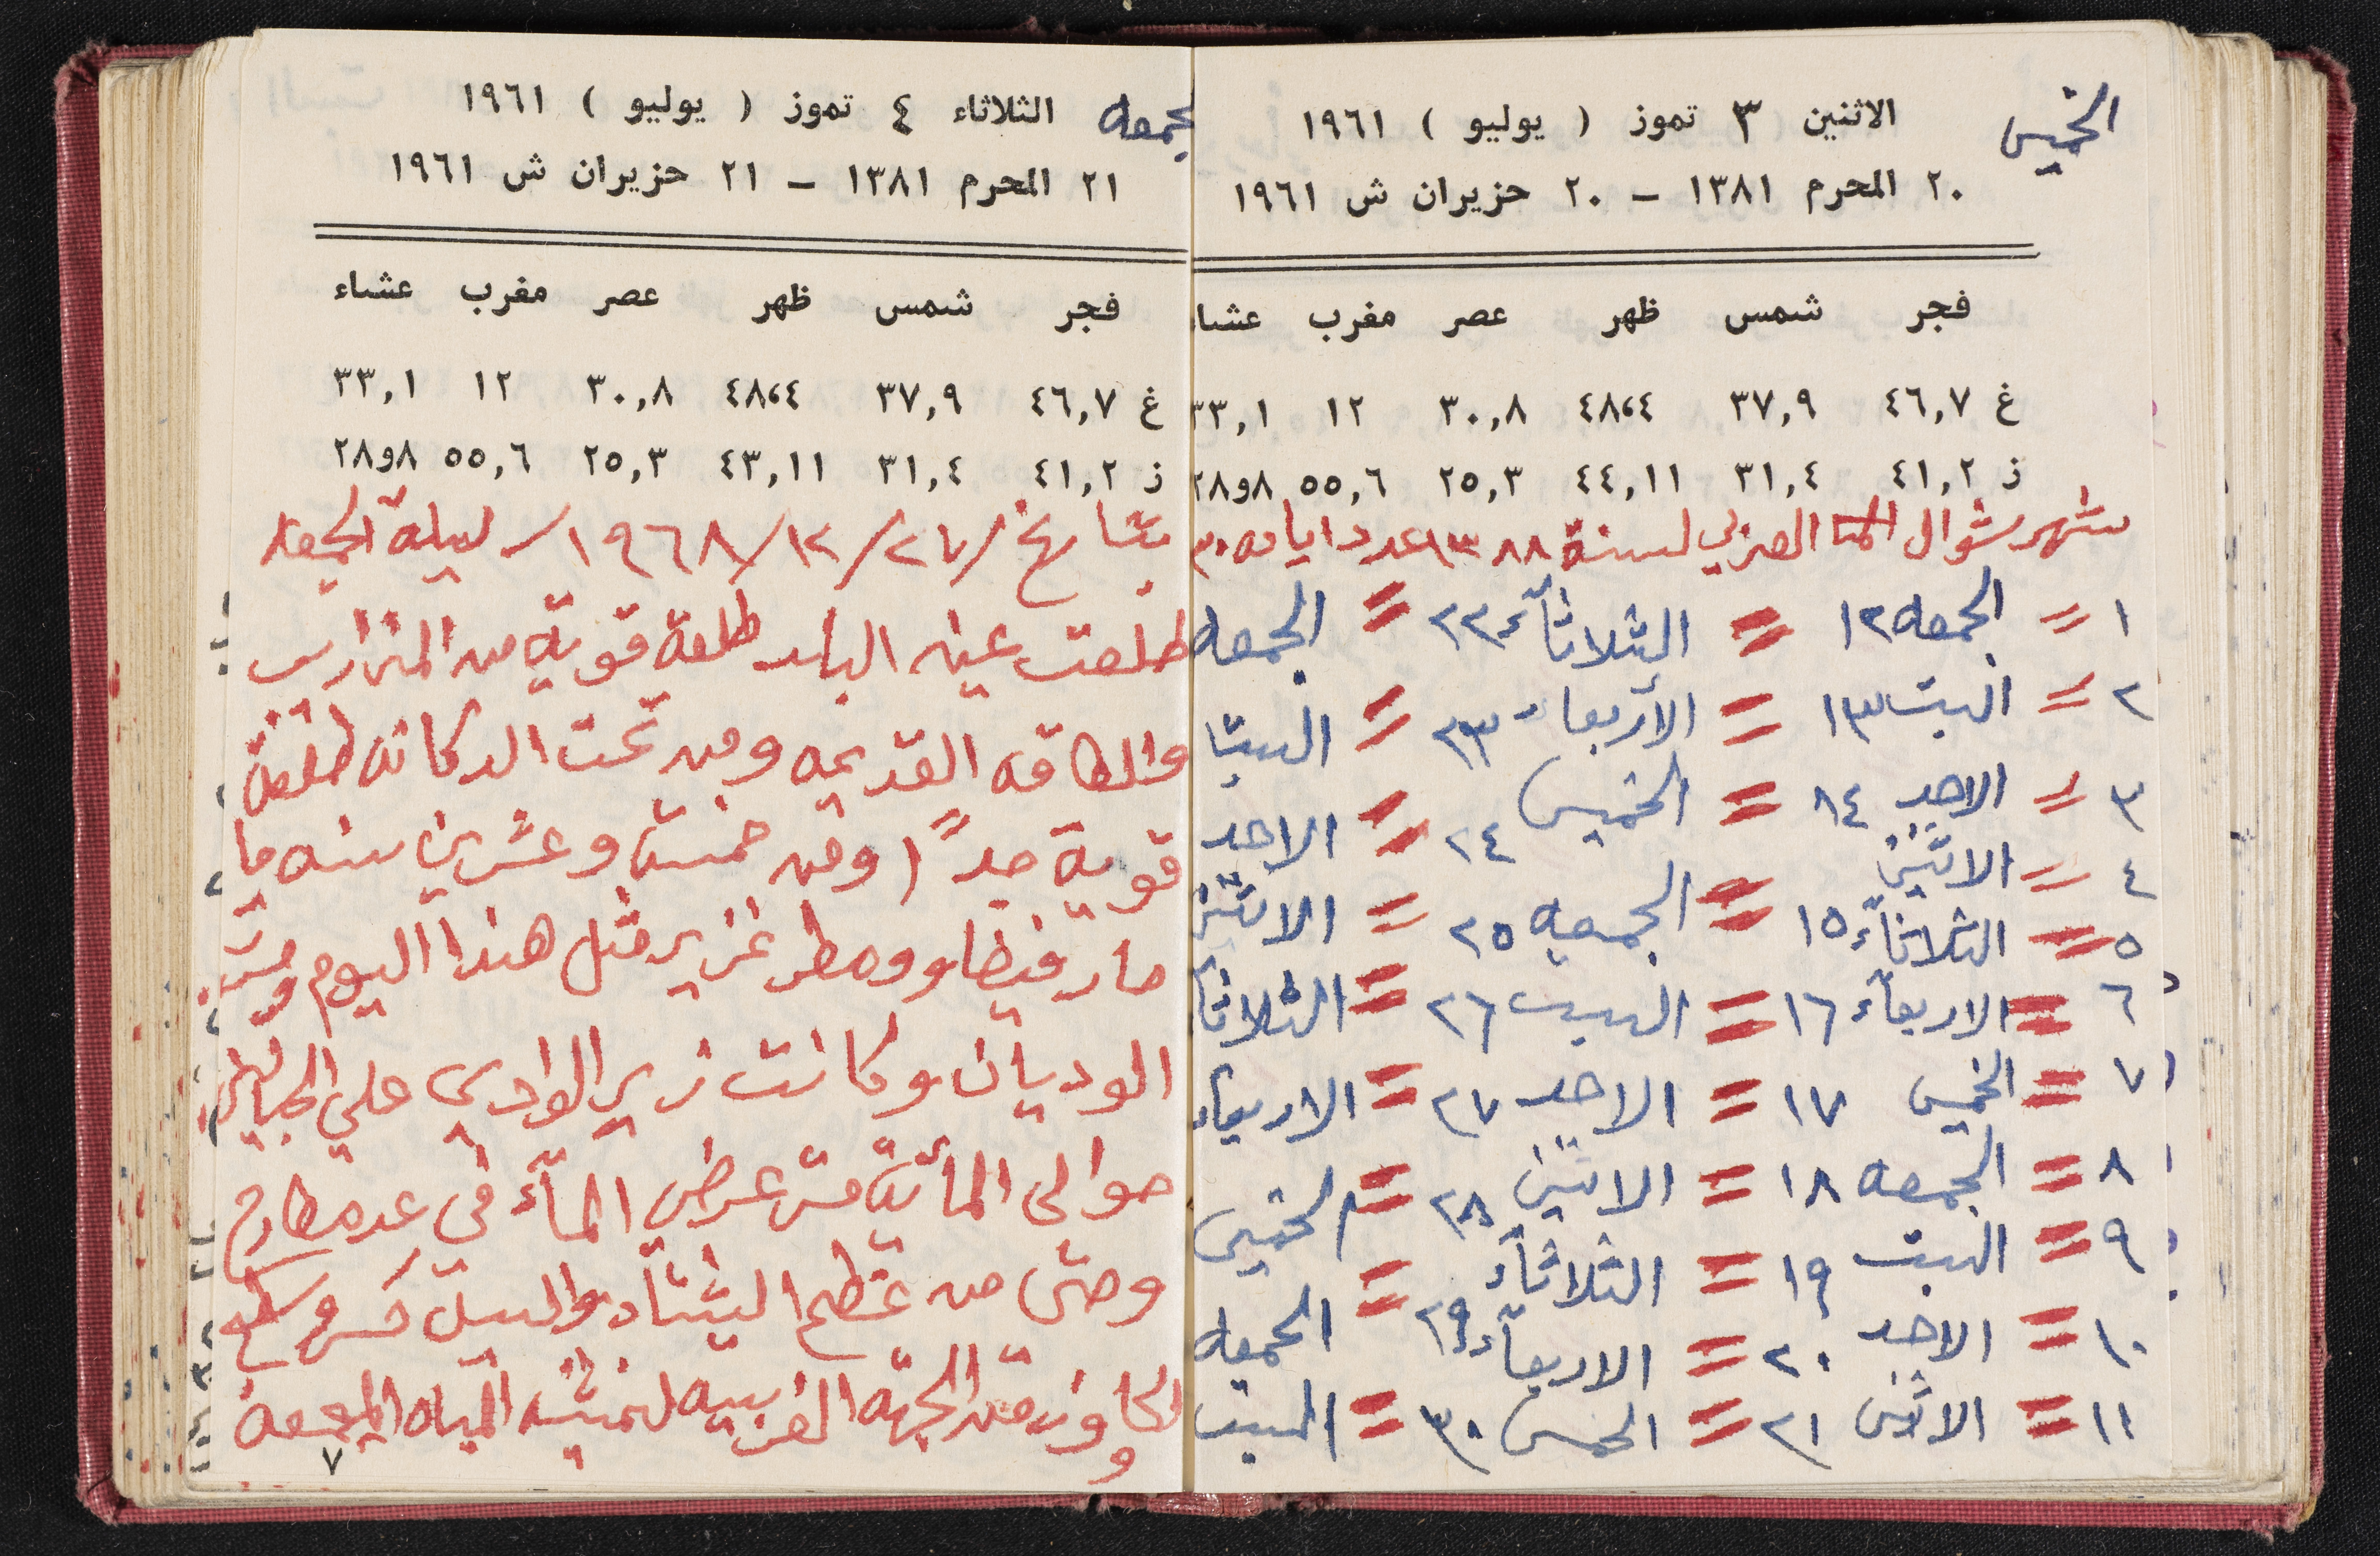 الخميس
الاثنين ٣ تموز ( يوليو ) ١٩٦١
٢٠ المحرم ١٣٨١ – ٢٠ حزيران ش ١٩٦١
فجر شمس ظهر عصر مغرب عشاء
غ ٤٦,٧ ٣٧,٩ ٤٨،٤ ٣٠,٨ ١٢ ٣٣,١
ز ٤١,٢ ٣١,٤ ٤٤,١١ ٢٥,٣ ٥٥,٦ ٨و٢٨
شهر شوال العربي لسنة ١٣٨٨ عدد ايامه ٣٠
١ = الجمعه ١٢ = الثلاثآء ٢٢ = الجمعه
٢ = السبت ١٣ = الأربعاء ٢٣ = السبت
٣ = الاحد ١٤ = الخميس ٢٤ = الاحد
٤ = الاثنين = الجمعه ٢٥ = الاثنين
٥ = الثلاثآء ١٥
٦ = الاربعآء ١٦ = السبت ٢٦ = الثلاثآ
٧ = الخميس ١٧ = الاحد ٢٧ = الاربعاء
٨ = الجمعه ١٨ = الاثنين ٢٨ = الخميس
٩ = السبت ١٩ = الثلاثآء ٢٩ = الجمعه
١٠ = الاحد ٢٠ = الاربعآء
١١ = الاثنين ٢١ = الخمس ٣٠ = السبت
جمعه
الثلاثاء ٤ تموز ( يوليو ) ١٩٦١
٢١ المحرم ١٣٨١ – ٢١ حزيران ش ١٩٦١
فجر شمس ظهر عصر مغرب عشاء
غ ٤٦,٧ ٣٧,٩ ٤٨،٤ ٣٠,٨ ١٢ ٣٣,١
ز ٤١,٢ ٣١,٤ ٤٣,١١ ٢٥,٣ ٥٥,٦ ٨و٢٨
بتاريخ /٢٧/١٢/١٩٦٨/ ليلة الجمعه
طلعت عين البلد طلعة قوية من المزاريب
والطاقه القديمه ومن تحت الدكانه طلعة
قوية جداً ومن خمسة وعشرين سنه ما
صار فيضان ومطر غزير مثل هذا اليوم
الوديان وكانت زير الوادي علي
حوالي المأية متر عرض المآء في عده مطارح
وحتى من عظم الشتآء والسيل
من الجهه الغربيه المياه
٧